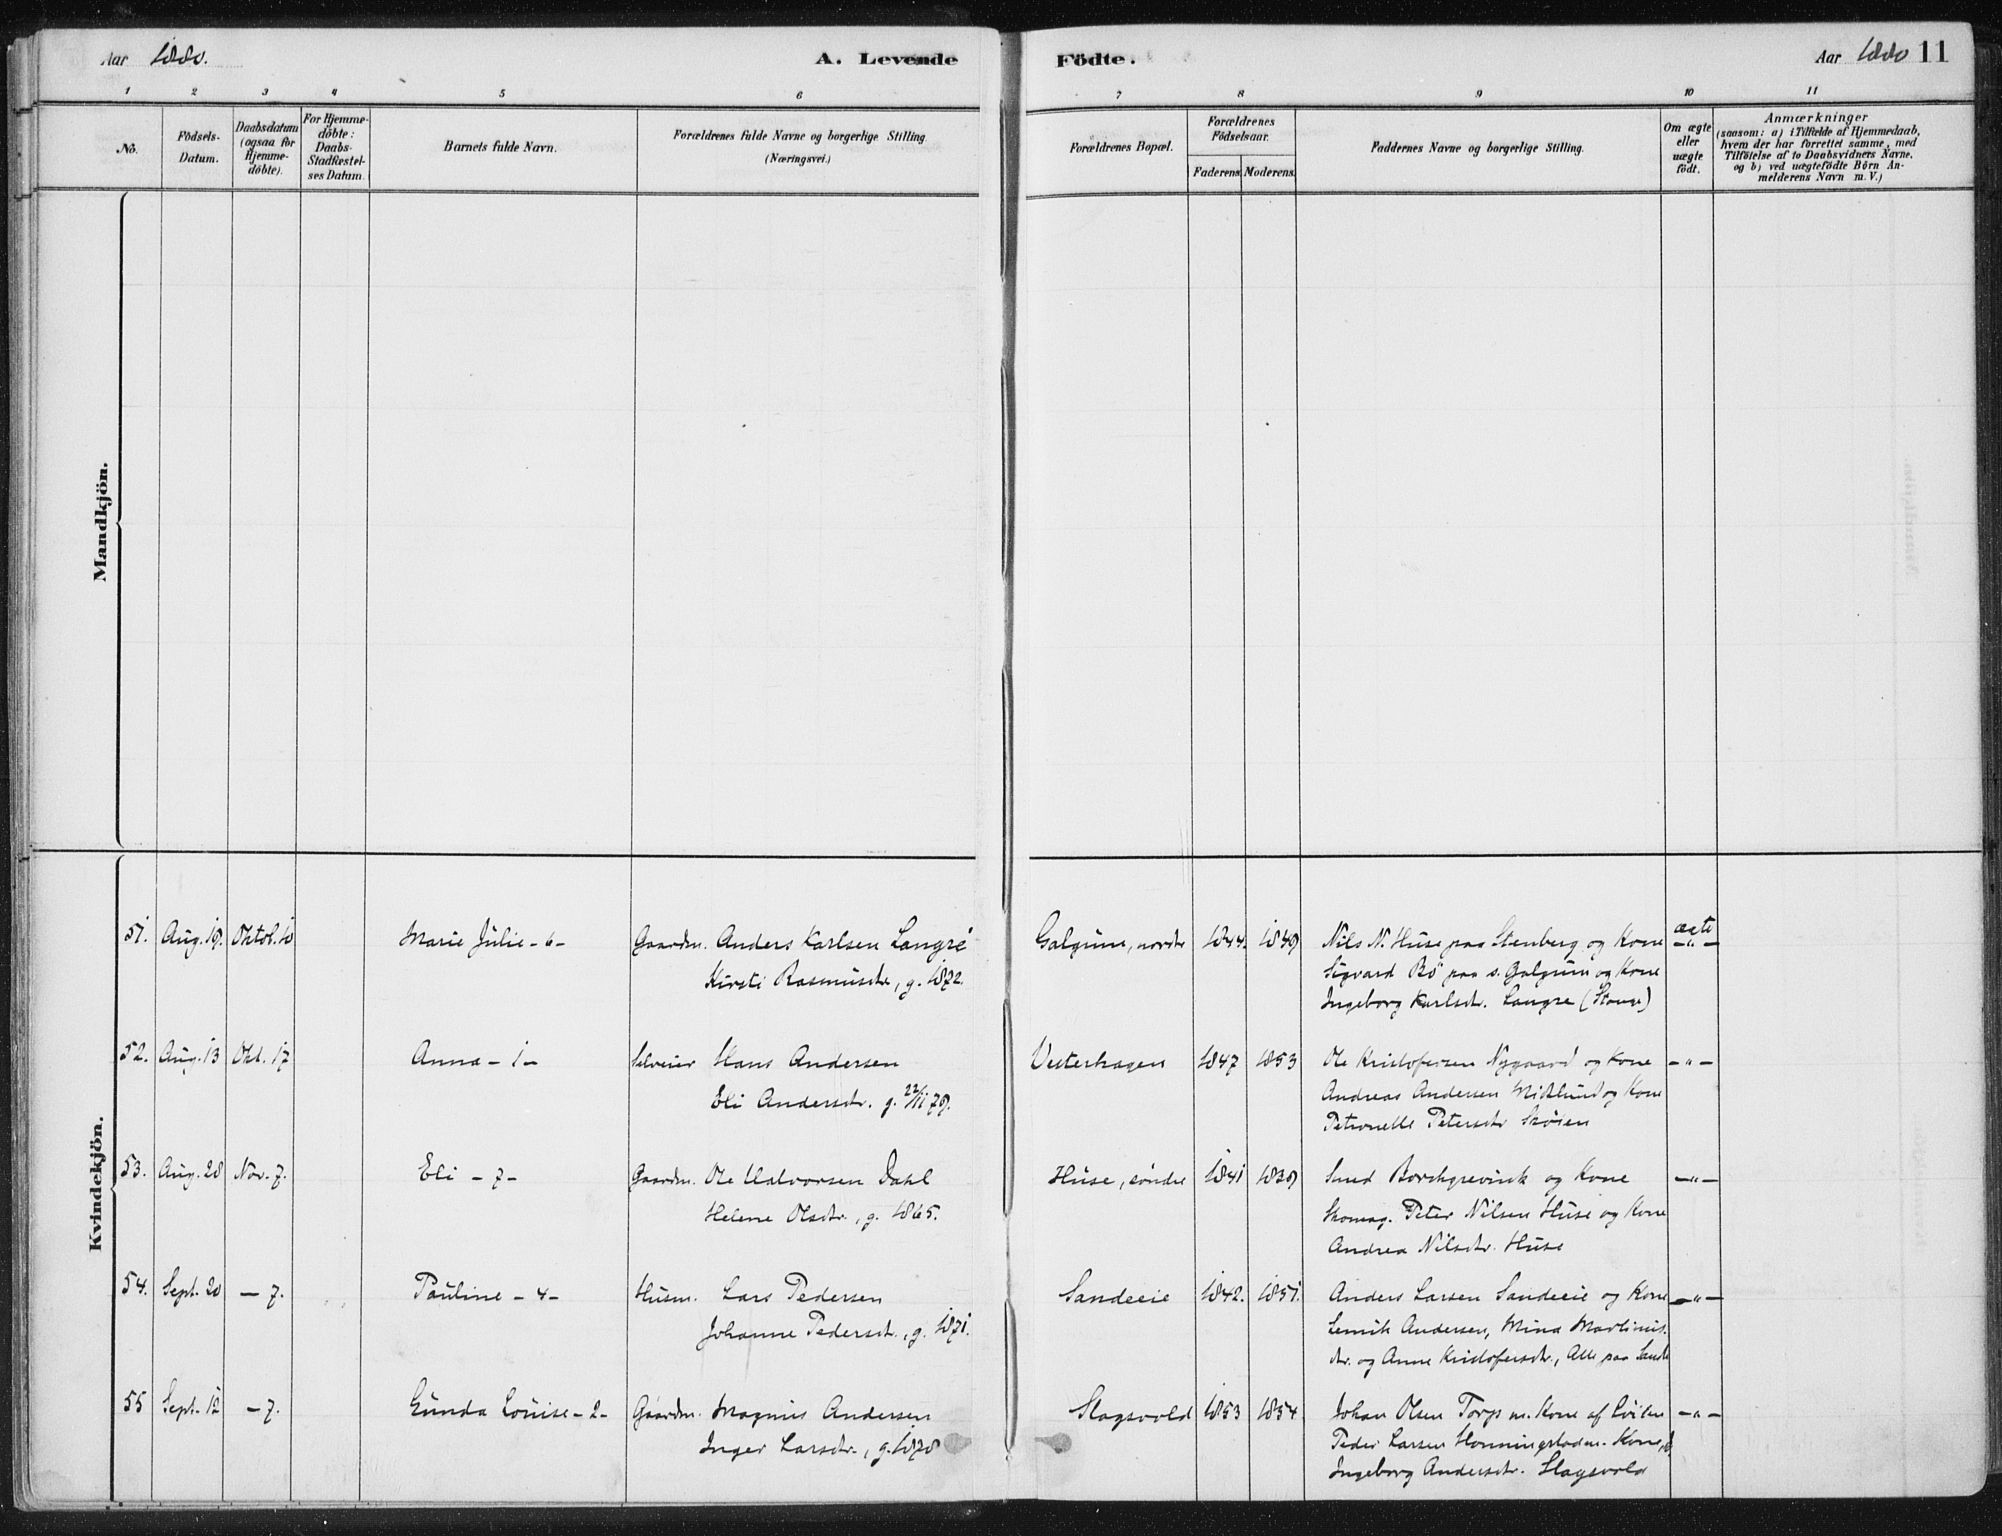 Aar 1880.
A. Levende Födte.
Aar 1880 11
1 2 3 4 5 6 7 8 9 10 11
No.
Födsels-Datum.
Daabsdatum (ogsaa for Hjemme-döbte).
For Hjemme-döbte: Daabs-Stadfæstel-ses Datum.
Barnets fulde Navn.
Forældrenes fulde Navne og borgerlige Stilling. (Næringsvei.)
Forældrenes Bopæl.
Forældrenes Födselsaar.
Faderens. Moderens.
Faddernes Navne og borgerlige Stilling.
Om ægte eller uægte födt.
Anmærkninger
(saasom: a) i Tilfælde af Hjemmedaab,
hvem der har forrettet samme, med
Tilföielse af to Daabsvidners Navne,
og b) ved uægtefödte Börn An-
melderens Navn m. V.)
Mandkjön.
Kvindekjön.
51. Aug. 19. Oktob. 10 Marie Julie - 6 - Gaardm. Anders Karlsen Langre Galgum, nordre 1844. 1849 Nils N. Huse paa Stenberg og Kone ægte - " -
Kirsti Rasmusdtr, g. 1872. Sigvard Bö paa s. Galgum og Kone
Ingeborg Karlsdtr. Langre (Stange)
52. Aug. 13 Okt. 17 Anna - 1 - Selveier Hans Andersen Vesterhagen 1847 1853 Ole Kristofersen Nygaard og Kone - " -
Eli Andersdtr. g. 22/11 79. Andreas Andersen Midtlund og Kone
Petronelle Petersdtr Sköien
53. Aug. 28 Nov. 7. Eli - 7 - Gaardm. Ole Halvorsen Dahl Huse, söndre 1841 1839 Smed Borchgrevink og Kone - " -
Helene Olsdtr., g. 1865. Skomag. Peter Nilsen Huse og Kone
Andrea Nilsdtr. Huse
54. Sept. 20 - 7. Pauline - 4 - Husm. Lars Pedersen Sandeeie 1842. 1851. Anders Larsen Sandeeie og Kone - " -
Johanne Pedersdt., g. 1871. Andersen, Mina Martinus.
dtr. og Anne Kristofersdtr., Alle paa Sande
55 Sept. 12 - 7. Gunda Louise - 2 - Gaardm. Magnus Andersen Slagsvold 1853 1854. Johan Olsen Torp m. Kone af Löiten - " -
Inger Larsdtr., g. 1878 Peder Larsen Honningstadm. Kone,
Ingeborg Andersdtr. Slagsvold